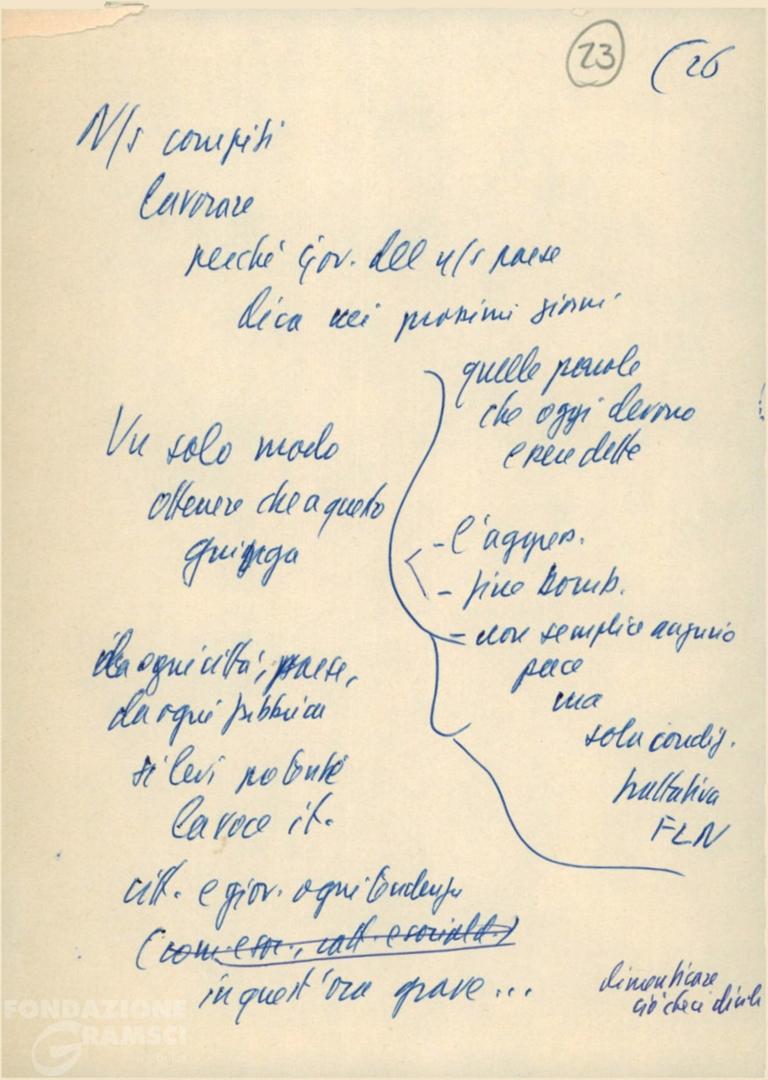 23 (26
N/s compiti
lavorare
perché Gov. del n/s paese
dica nei prossimi giorni
quelle parole
che oggi devono
essere dette
Un solo modo
ottenere che a questo
giunga
- l'aggress.
- fine bomb.
- non semplice augurio
pace
ma
sola condiz.
trattativa
FLN
da ogni città, paese,
da ogni fabbrica
si levi potente
la voce it.
citt. e giov. ogni tendenza
(com. e soc., catt. e sociald.)
in quest'ora grave...
dimenticare
ciò che ci divide
FONDAZIONE
GRAMSCI